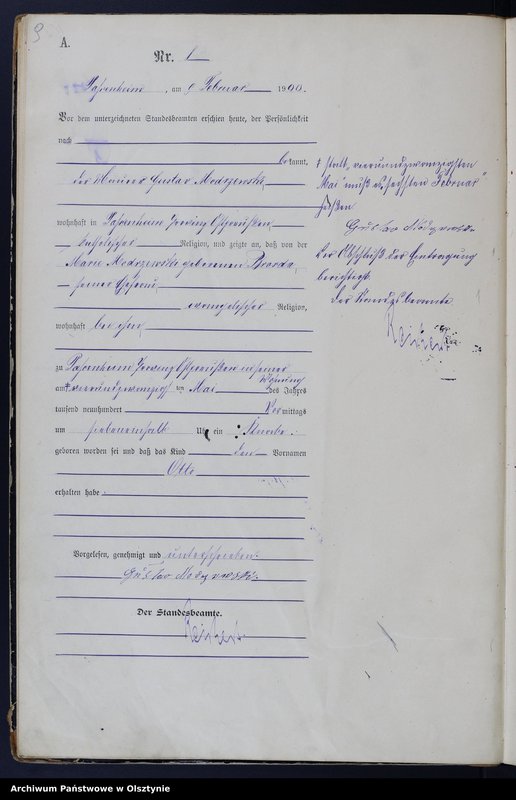 9
A.
Nr. 1
Passenheim, am 9 Februar 1900.
Vor dem unterzeichneten Standesbeamten erschien heute, der Persönlichkeit
nach
bekannt,
der Maurer Gustav Modrzewski
wohnhaft in Passenheim Provinz Ostpreußen,
katholischer Religion, und zeigte an, daß von der
Marie Modrzewski geborenen
seiner Ehefrau,
evangelischer Religion,
wohnhaft bei ihm,
zu Passenheim Provinz Ostpreußen in seiner
Wohnung
am vierundzwanzigsten Mai des Jahres
tausend neunhundert Vormittags
um sieben einhalb Uhr ein Knabe
geboren worden sei und daß das Kind den Vornamen
Otto
erhalten habe.
Vorgelesen, genehmigt und unterschrieben.
Gustav Modrzewski.
Der Standesbeamte.
Reichert
† statt „vierundzwanzigsten
Mai“ muß es sechsten Februar
heißen.
Gustav Modrzewski.
Vor Abschluß der Eintragung
berichtigt.
Der Standesbeamte.
Reichert
Archiwum Państwowe w Olsztynie